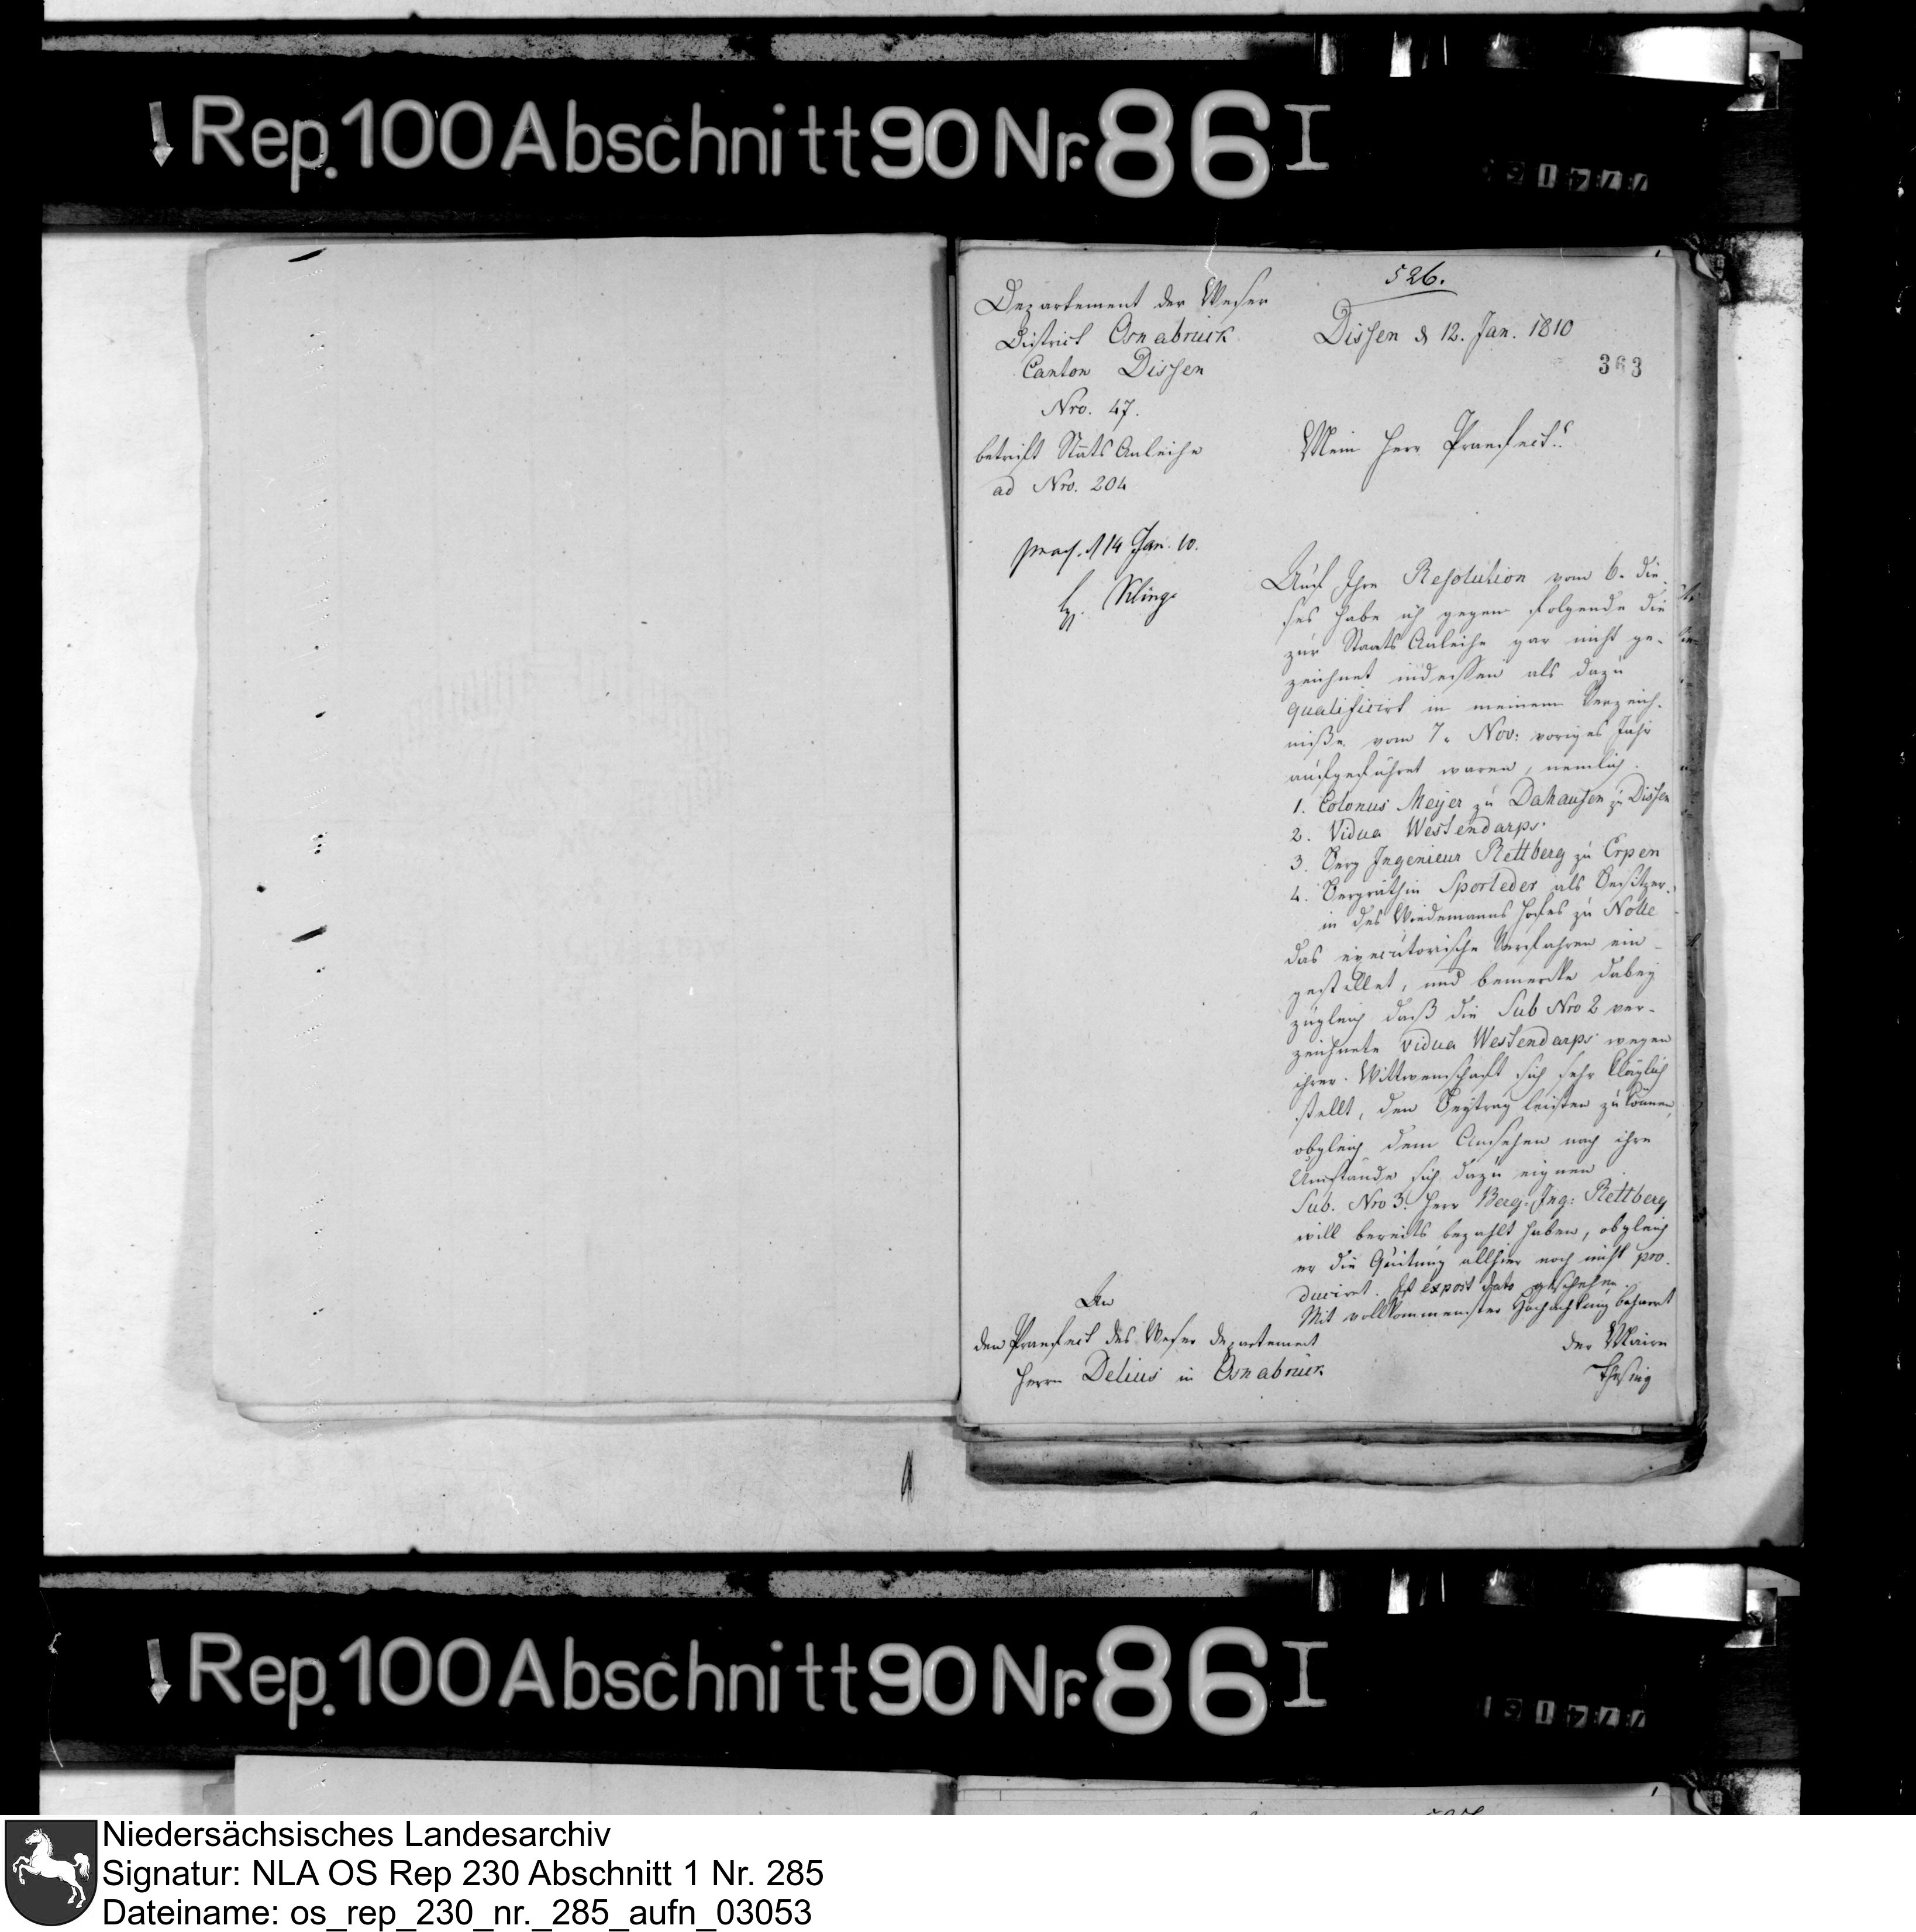 Rep. 100 Abschnitt 90 Nr. 86 I
526.
Departement der Weser
District Osnabruck
Canton Dissen
Nro. 47.
betrift Staats Anleihe
ad Nro. 204
Dissen d 12. Jan. 1810
363
Mein Herr Praefect!
praes. d 14 Jan. 10.
Klinge
Auf Ihre Resolution vom 6. die-
ses habe ich gegen folgende die
zur Staats Anleihe gar nicht ge-
zeichnet indessen als dazu
qualificirt in meinem Verzeich-
niße vom 7. Nov: voriges Jahr
aufgeführet waren, nemlich
1. Colonus Meyer zu Dahausen zu Dissen
2. Vidua Westendarps.
3. Berg Ingenieur Rettberg zu Erpen
4. Bergräthin Sporleder als Besitzer-
in des Wiedemanns Hofes zu Nolle
das executorische Verfahren ein-
gestellet, und bemerke dabey
zugleich daß die Sub Nro 2 ver-
zeichnete vidua Westendarps wegen
ihrer Wittwenschaft sich sehr kläglich
stellt, den Beytrag leisten zu können,
obgleich dem Ansehen nach ihre
Umstände sich dazu eignen
Sub. Nro 3. Herr Berg. Ing: Rettberg
will bereits bezahlt haben, obgleich
er die Quitung allhier noch nicht pro-
duciret. Ist expost dato geschehen.
Mit vollkommenster Hochachtung beharret
der Maire
Thesing
An
den Praefect des Weser Departement
Herrn Delius in Osnabrück
Rep. 100 Abschnitt 90 Nr. 86 I
Niedersächsisches Landesarchiv
Signatur: NLA OS Rep 230 Abschnitt 1 Nr. 285
Dateiname: os_rep_230_nr._285_aufn_03053